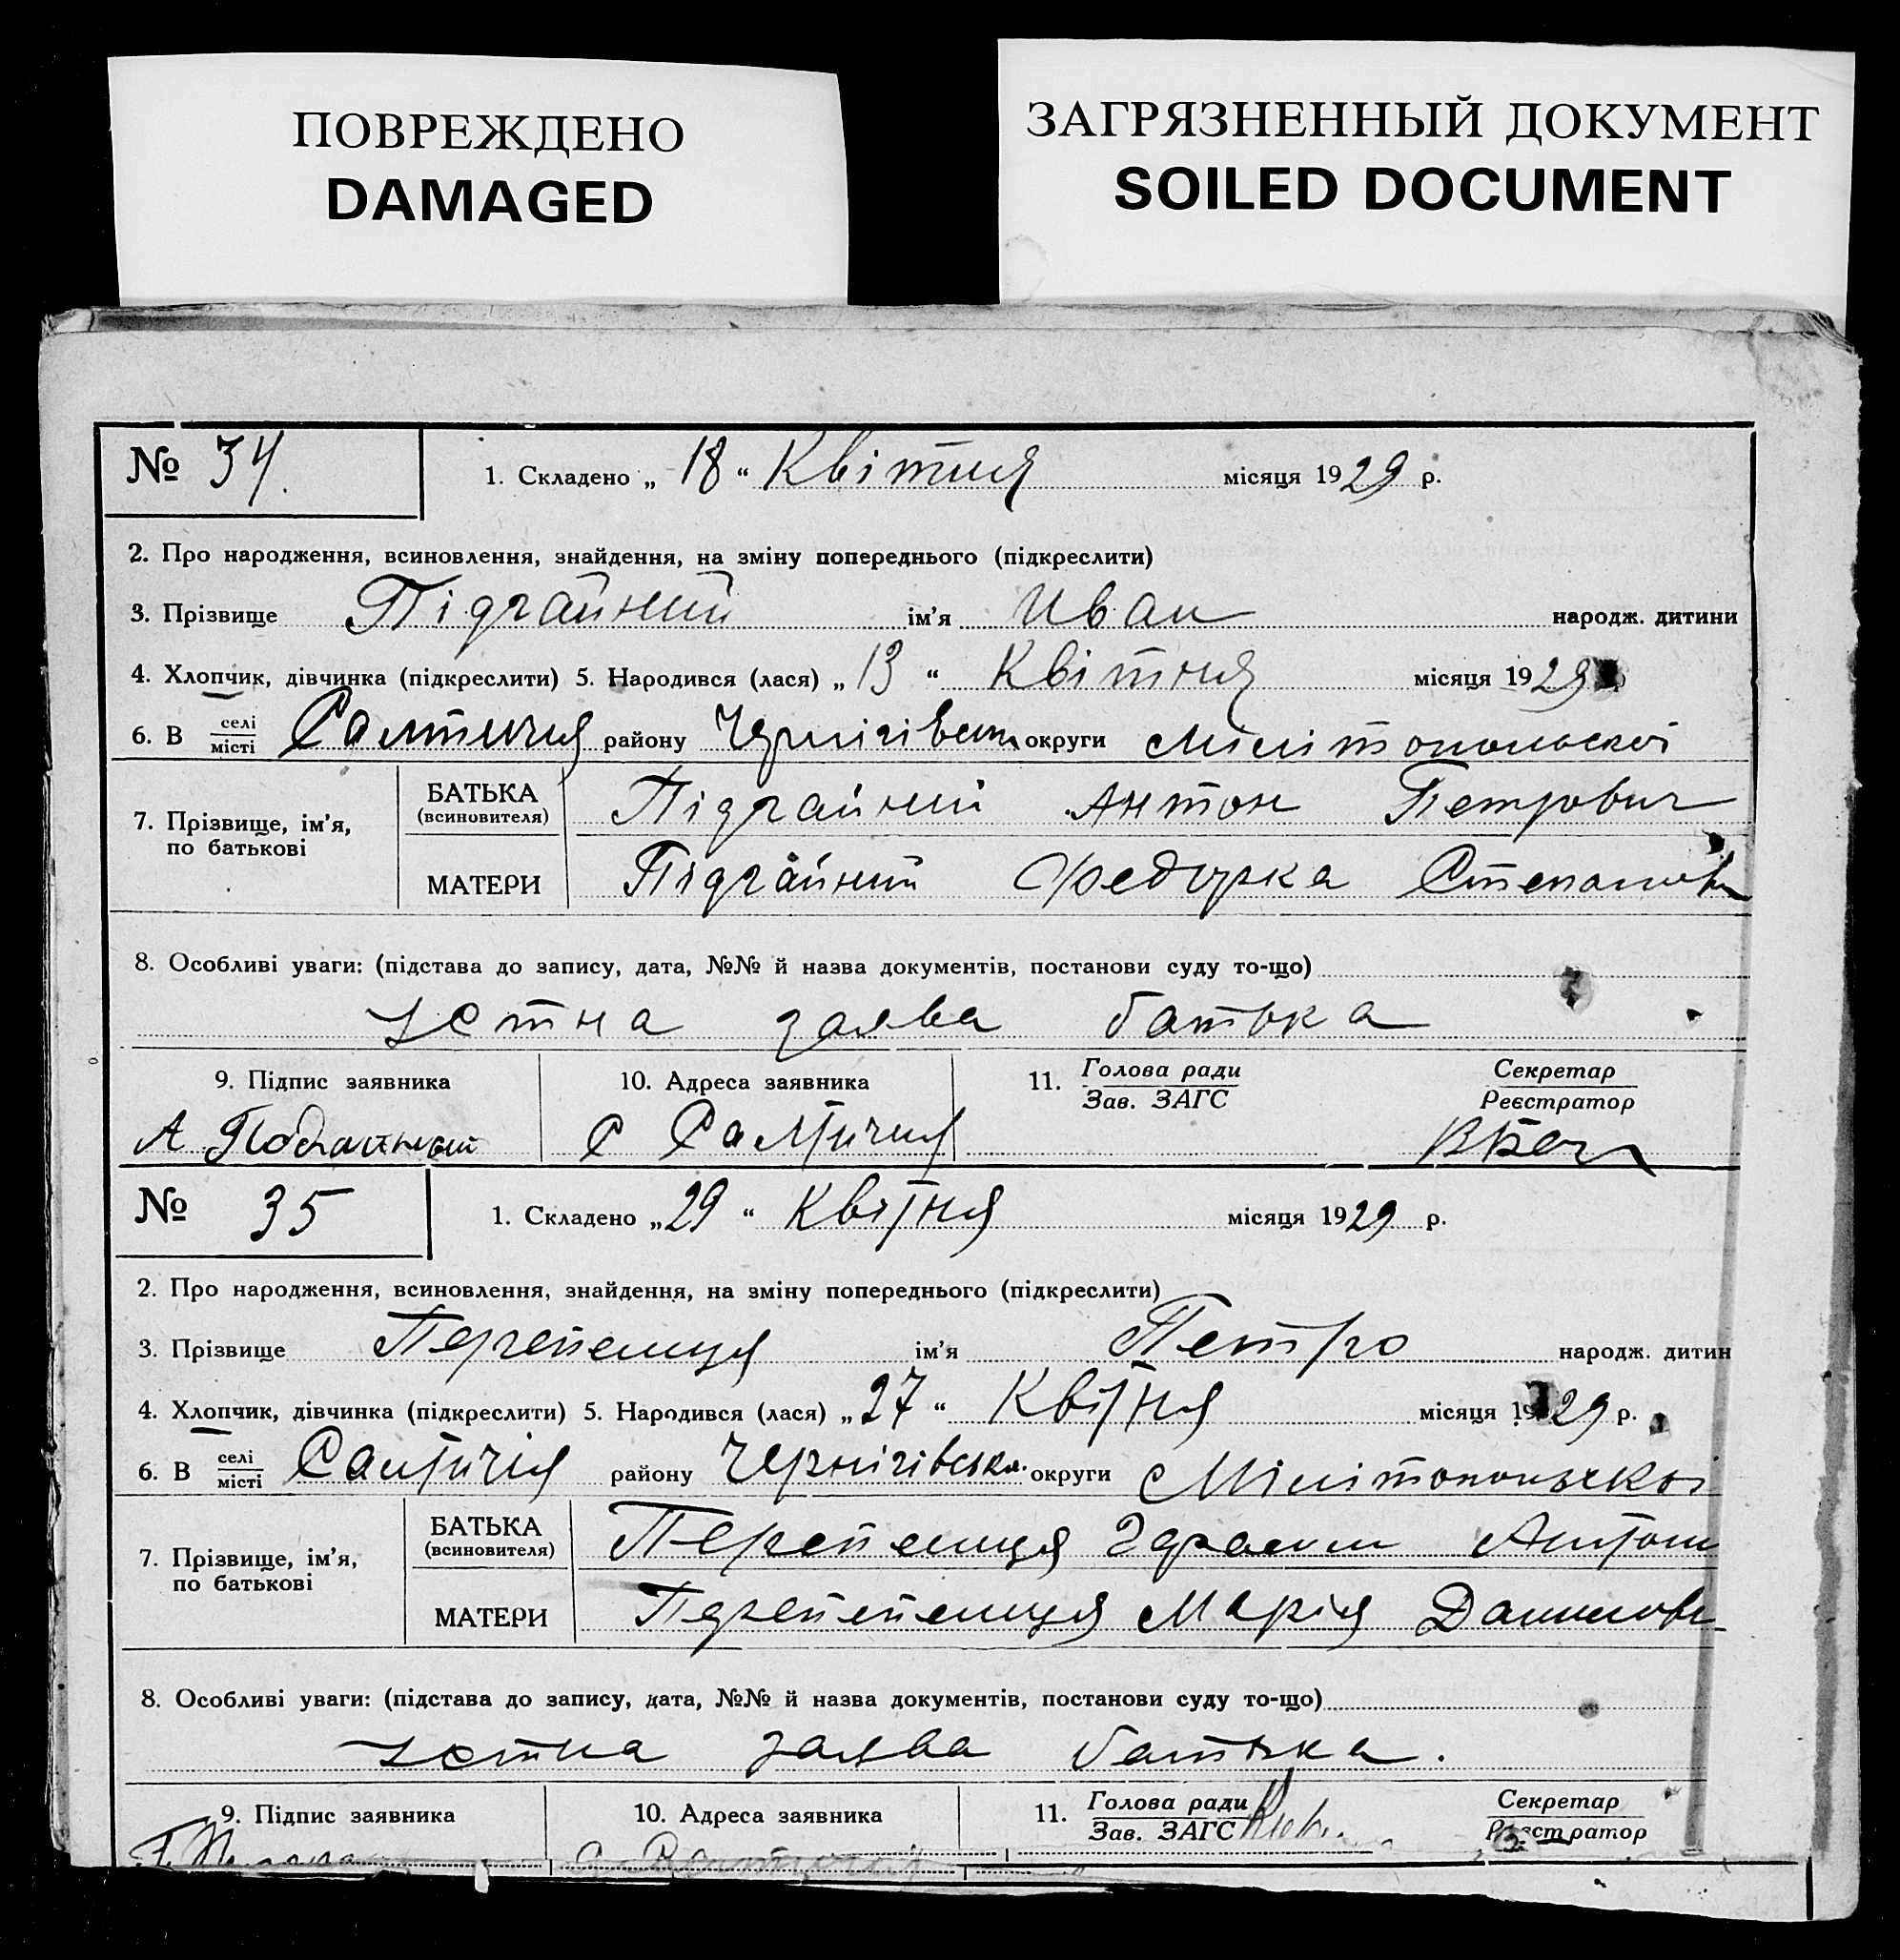 ПОВРЕЖДЕНО
DAMAGED
ЗАГРЯЗНЕННЫЙ ДОКУМЕНТ
SOILED DOCUMENT
№ 34.
1. Складено „ 18 “ Квітня місяця 1929 р.
2. Про народження, всиновлення, знайдення, на зміну попереднього (підкреслити)
3. Прізвище Підгайний ім’я Иван народж. дитини
4. Хлопчик, дівчинка (підкреслити) 5. Народився (лася) „ 13 “ Квітня місяця 1929
6. В селі місті Салтичія району Чернігівськ округи Мілітопольскої
7. Прізвище, ім’я, по батькові
БАТЬКА (всиновителя) Підгайний Антон Петрович
МАТЕРИ Підгайний Федурка Степанов
8. Особливі уваги: (підстава до запису, дата, №№ й назва документів, постанови суду то-що)
устна заява батька
9. Підпис заявника
10. Адреса заявника
11. Голова ради Зав. ЗАГС
Секретар Реєстратор
А Подгайный с Салтичия
№ 35
1. Складено „ 29 “ Квітня місяця 1929 р.
2. Про народження, всиновлення, знайдення, на зміну попереднього (підкреслити)
3. Прізвище Перепелиця ім’я Петро народж. дитин
4. Хлопчик, дівчинка (підкреслити) 5. Народився (лася) „ 27 “ Квітня місяця 1929 р.
6. В селі місті Салтичія району Чернігівська округи Мілітопольскої
7. Прізвище, ім’я, по батькові
БАТЬКА (всиновителя) Перепелиця Антон
МАТЕРИ Перепепелиця Марія Данилов
8. Особливі уваги: (підстава до запису, дата, №№ й назва документів, постанови суду то-що)
устна заява батька.
9. Підпис заявника
10. Адреса заявника
11. Голова ради Зав. ЗАГС
Секретар Реєстратор